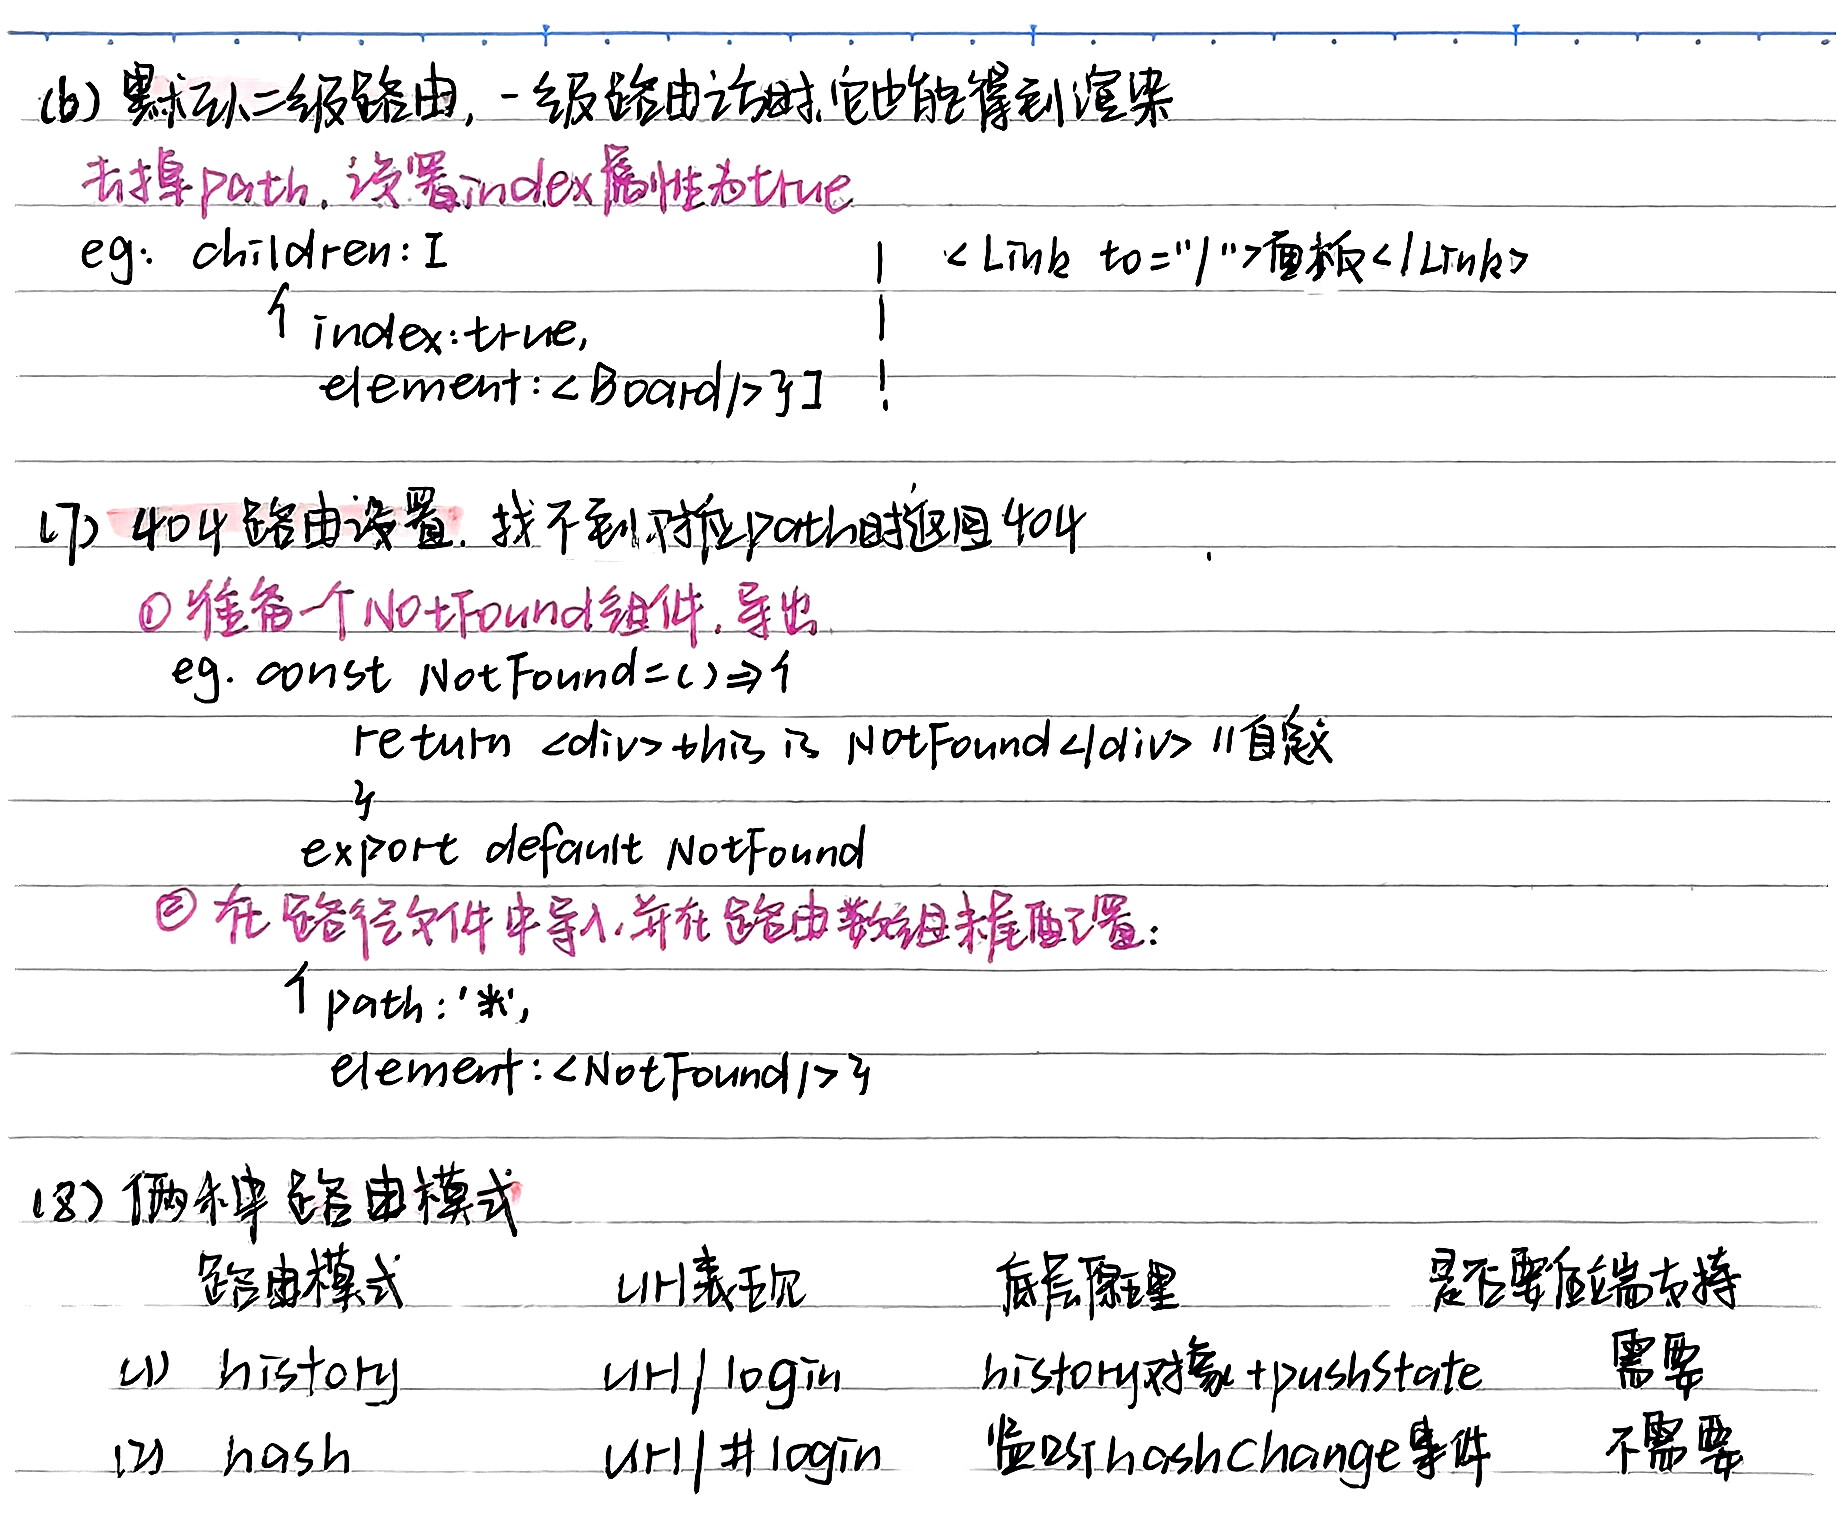 (6) 默认二级路由, 一级路由访问时, 它也能得到渲染
去掉path, 设置index属性为true
eg: children: [ | <Link to="/">面板</Link>
{ index: true,
element: <Board/>}]
(7) 404路由设置. 找不到对应path时返回404
① 准备一个NotFound组件, 导出
eg. const NotFound=()=>{
return <div>this is NotFound</div> //自定义
}
export default NotFound
② 在路径文件中导入, 并在路由数组末尾配置:
{ path: '*',
element: <NotFound/>}
(8) 俩种路由模式
路由模式 url表现 底层原理 是否要后端支持
(1) history url/login history对象+pushState 需要
(2) hash url/#login 监听hashChange事件 不需要